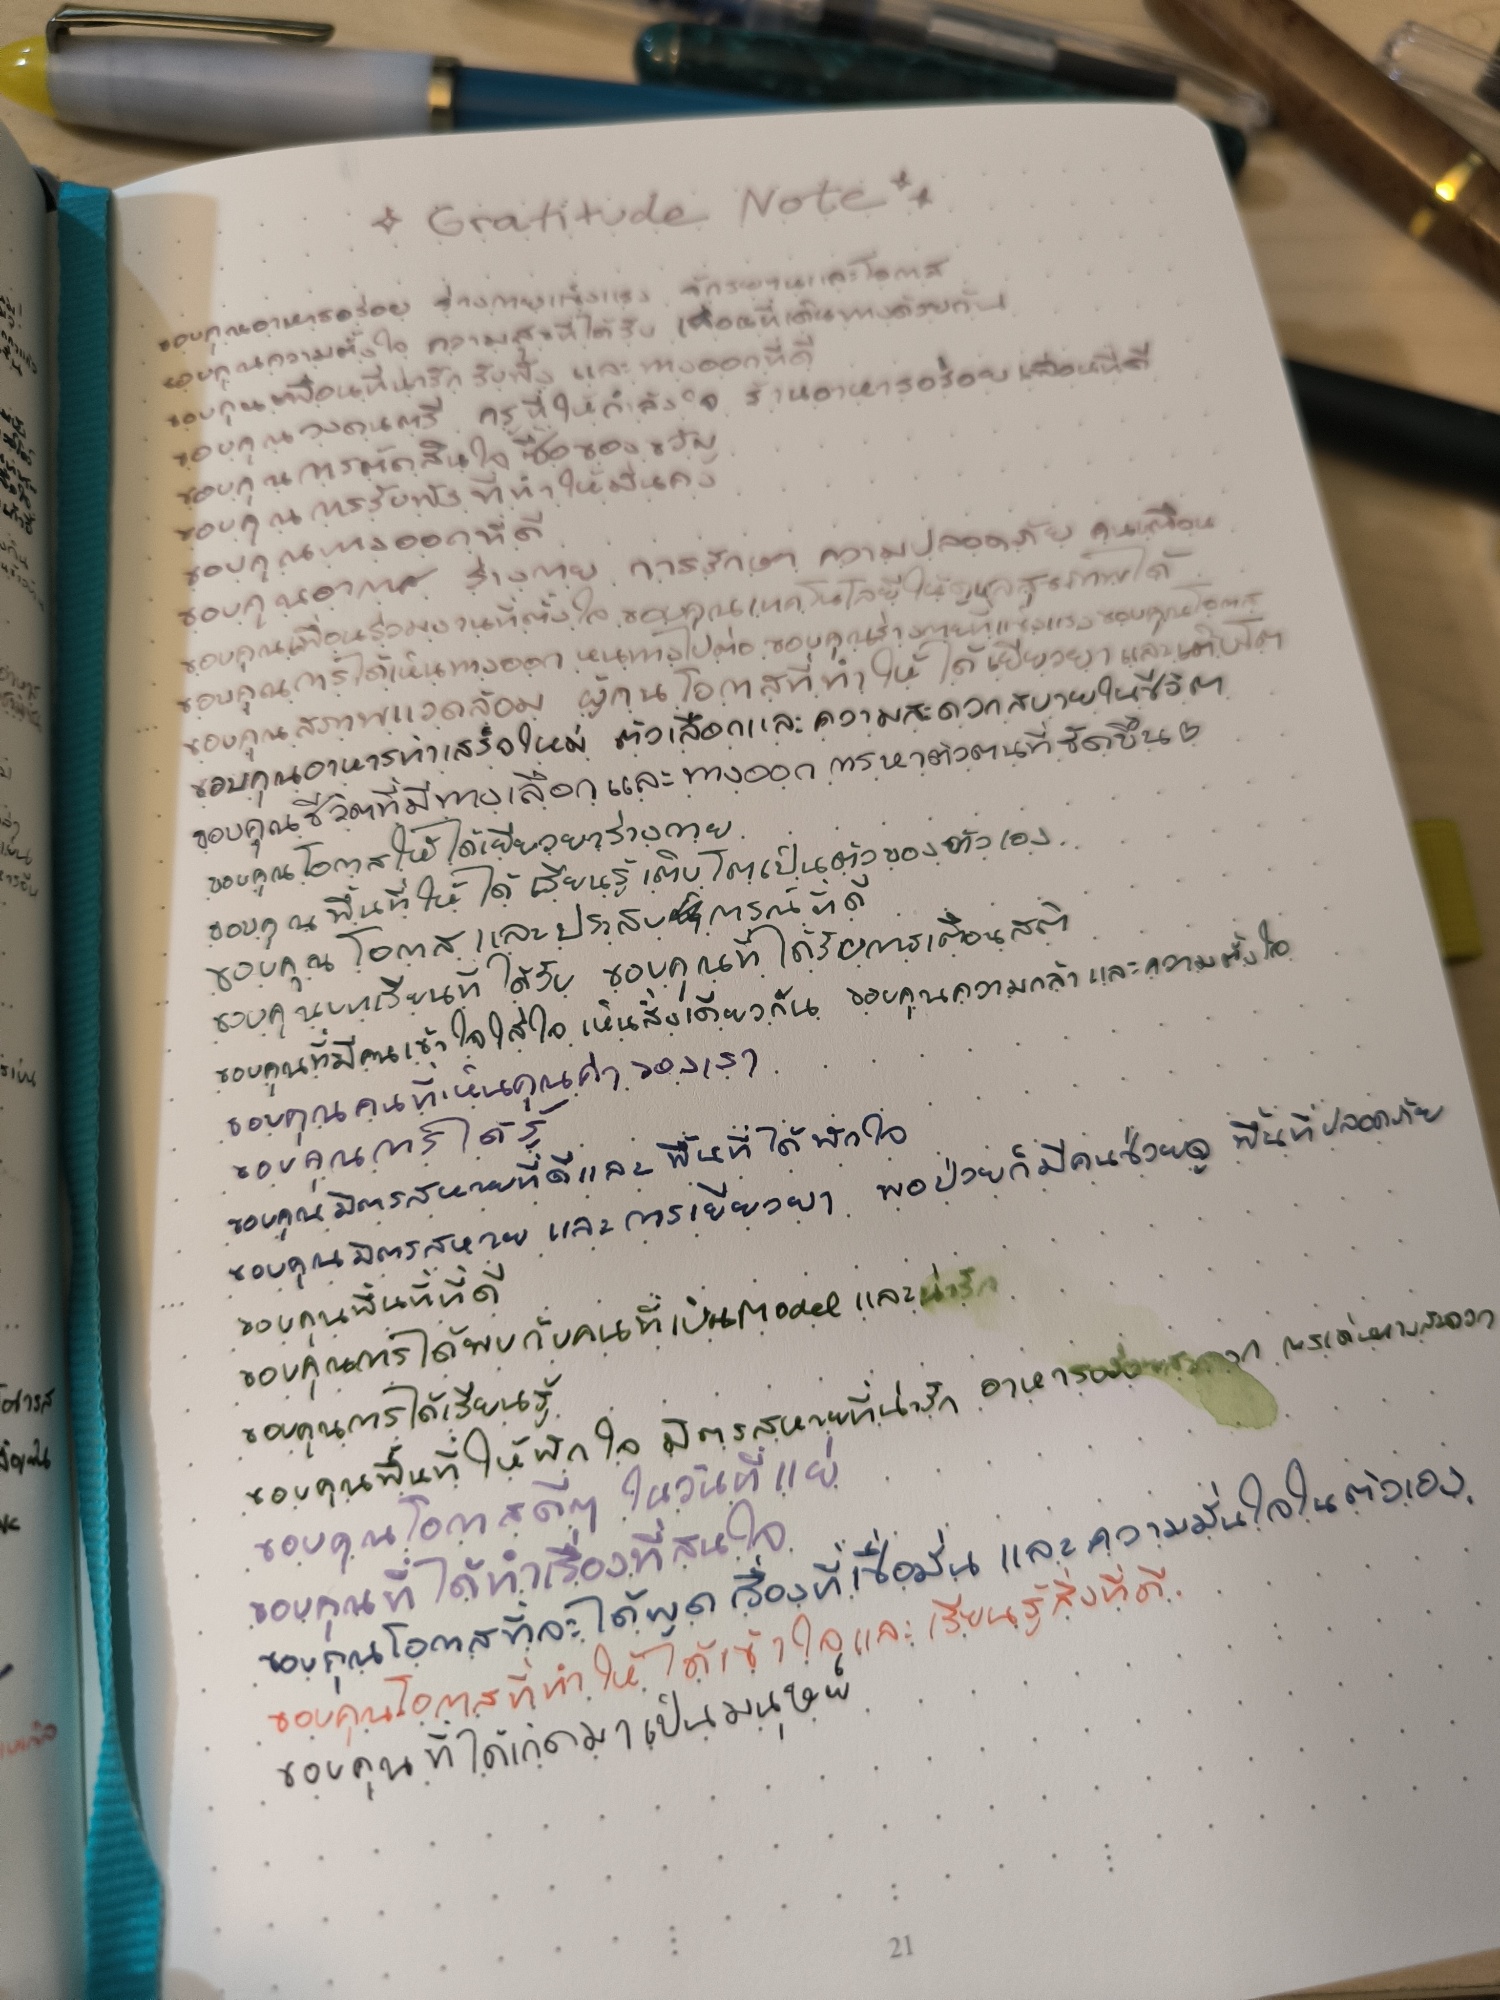 Gratitude Note
ขอบคุณอาหารอร่อย ร่างกายแข็งแรง จักรยานและโอกาส
ขอบคุณความตั้งใจ ความสุขที่ได้รับ เพื่อนที่เดินทางด้วยกัน
ขอบคุณเพื่อนที่น่ารัก รับฟัง และทางออกที่ดี
ขอบคุณวงดนตรี ครูที่ให้กำลังใจ ร้านอาหารอร่อย เพื่อนที่ดี
ขอบคุณการตัดสินใจ ซื้อของขวัญ
ขอบคุณการรับฟัง ที่ทำให้มั่นคง
ขอบคุณทางออกที่ดี
ขอบคุณอากาศ ร่างกาย การรักษา ความปลอดภัย คุณเพื่อน
ขอบคุณเพื่อนร่วมงานที่ตั้งใจ ขอบคุณเทคโนโลยีให้ดูแลสุขภาพได้
ขอบคุณการได้เห็นทางออก หนทางไปต่อ ขอบคุณร่างกายที่แข็งแรง ขอบคุณโอกาส
ขอบคุณสภาพแวดล้อม ผู้คน โอกาสที่ทำให้ได้เยียวยาและเติบโต
ขอบคุณอาหารทำเสร็จใหม่ ตัวเลือกและความสะดวกสบายในชีวิต
ขอบคุณชีวิตที่มีทางเลือกและทางออก การหาตัวตนที่ชัดขึ้น
ขอบคุณโอกาสให้ได้เยียวยาร่างกาย
ขอบคุณพื้นที่ให้ได้เรียนรู้เติบโตเป็นตัวของตัวเอง
ขอบคุณโอกาสและประสบการณ์ที่ดี
ขอบคุณบทเรียนที่ได้รับ ขอบคุณที่ได้รับการเตือนสติ
ขอบคุณที่มีคนเข้าใจใส่ใจ เห็นสิ่งเดียวกัน ขอบคุณความกล้าและความตั้งใจ
ขอบคุณคนที่เห็นคุณค่าของเรา
ขอบคุณการได้รู้
ขอบคุณมิตรสหายที่ดีและพื้นที่ได้พักใจ
ขอบคุณมิตรสหาย และการเยียวยา พอป่วยก็มีคนช่วยดู พื้นที่ปลอดภัย
ขอบคุณพื้นที่ที่ดี
ขอบคุณการได้พบกับคนที่เป็นModel และน่ารัก
ขอบคุณการได้เรียนรู้
ขอบคุณพื้นที่ให้พักใจ มิตรสหายที่น่ารัก อาหาร การเดินทางสะดวก
ขอบคุณโอกาสดีๆ ในวันที่แย่
ขอบคุณที่ได้ทำเรื่องที่สนใจ
ขอบคุณโอกาสที่จะได้พูดเรื่องที่เชื่อมั่น และความมั่นใจในตัวเอง.
ขอบคุณโอกาสที่ทำให้ได้เข้าใจและเรียนรู้สิ่งที่ดี.
ขอบคุณที่ได้เกิดมาเป็นมนุษย์
21